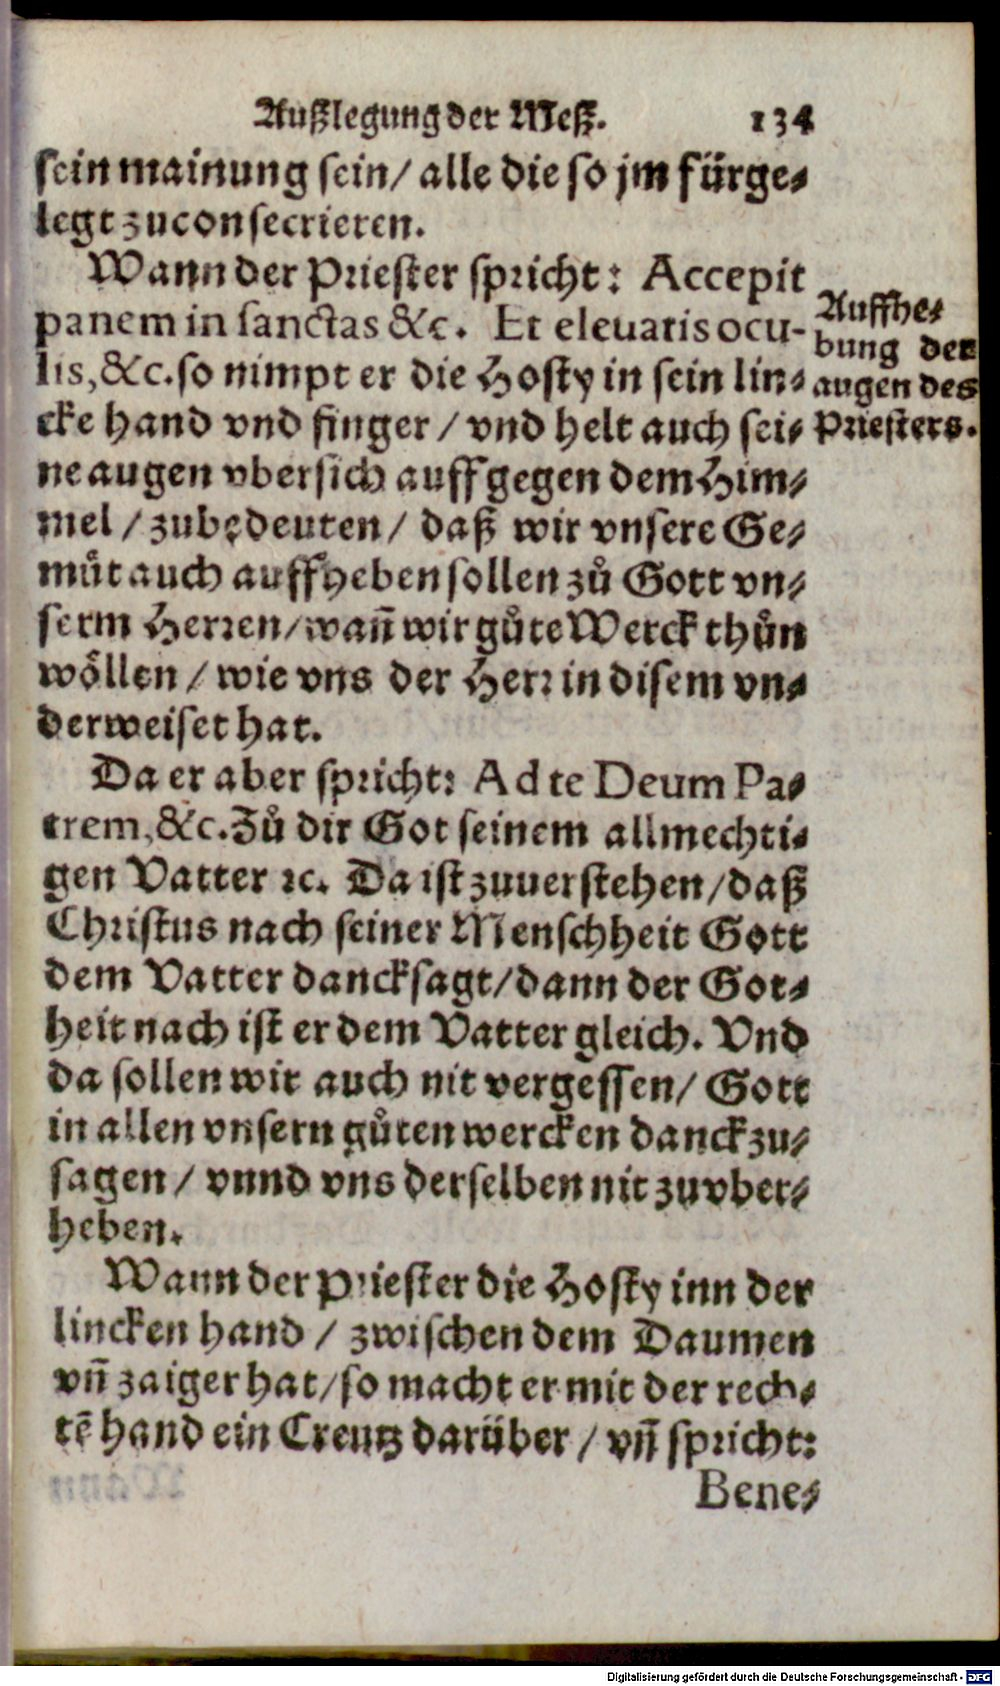 Außlegung der Meß. 134
sein mainung sein/ alle die so jm fürge⸗
legt zuconsecrieren.
Wann der Priester spricht: Accepit
panem in sanctas &c. Et eleuatis ocu-
lis, &c. so nimpt er die Hosty in sein lin⸗
cke hand vnd finger / vnd helt auch sei⸗
ne augen vbersich auff gegen dem Him⸗
mel / zubedeuten / daß wir vnsere Ge⸗
muͤt auch auffheben sollen zů Gott vn⸗
serm Herren/ wañ wir gůte Werck thůn
woͤllen / wie vns der Herr in disem vn⸗
derweiset hat.
Auffhe⸗
bung der
augen des
Priesters.
Da er aber spricht: Ad te Deum Pa⸗
trem, &c. Zů dir Got seinem allmechti⸗
gen Vatter ꝛc. Da ist zuuerstehen/ daß
Christus nach seiner Menschheit Gott
dem Vatter dancksagt/ dann der Got⸗
heit nach ist er dem Vatter gleich. Vnd
da sollen wir auch nit vergessen/ Gott
in allen vnsern gůten wercken danck zu⸗
sagen / vnnd vns derselben nit zuvber⸗
heben.
Wann der Priester die Hosty inn der
lincken hand / zwischen dem Daumen
vñ zaiger hat/ so macht er mit der rech⸗
tẽ hand ein Creutz darüber / vñ spricht:
Bene⸗
Digitalisierung gefördert durch die Deutsche Forschungsgemeinschaft - DFG